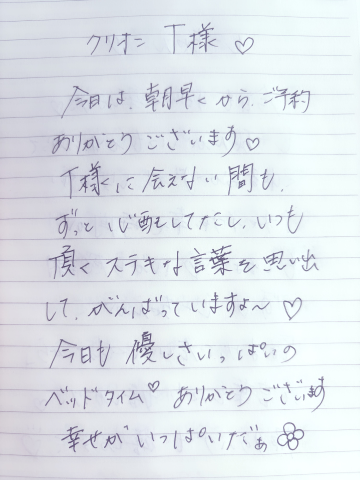 クリオネ T様♡
今日は、朝早くから、ご予約
ありがとうございます♡
T様くに会えない間も、
ずっと心配してたし、いつも
頂くステキな言葉を思い出
して、がんばっていますよ〜♡
今日も優しさいっぱいの
ベッドタイム♡ありがとうございます
幸せがいっぱいだぁ